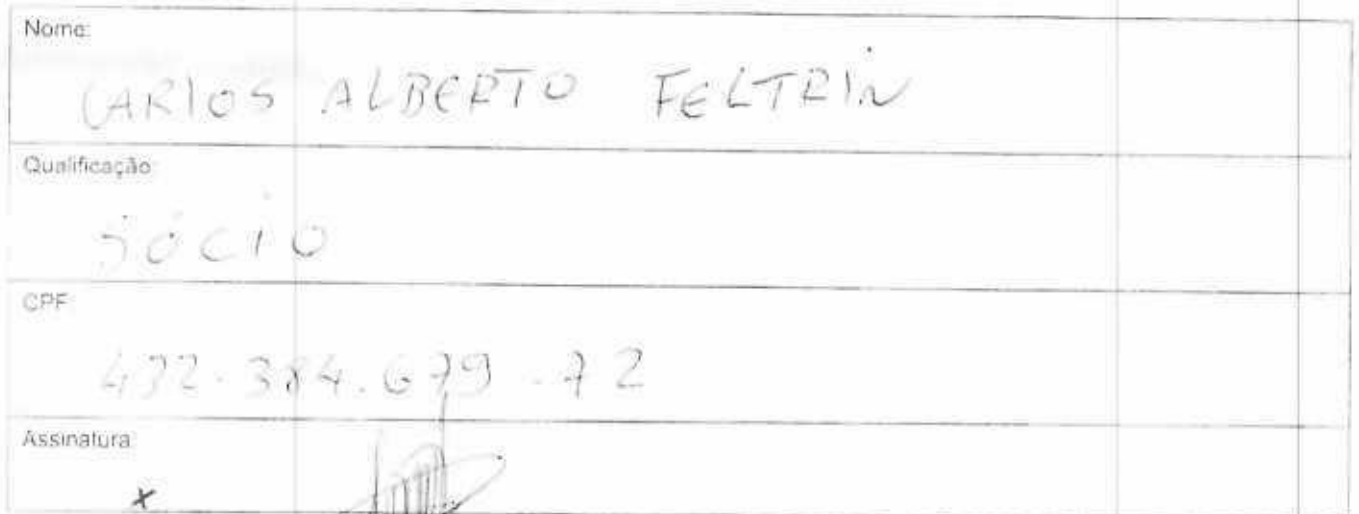 Nome:
CARLOS ALBERTO FELTRIN
Qualificação:
SÓCIO
CPF:
432.384.679-72
Assinatura:
x